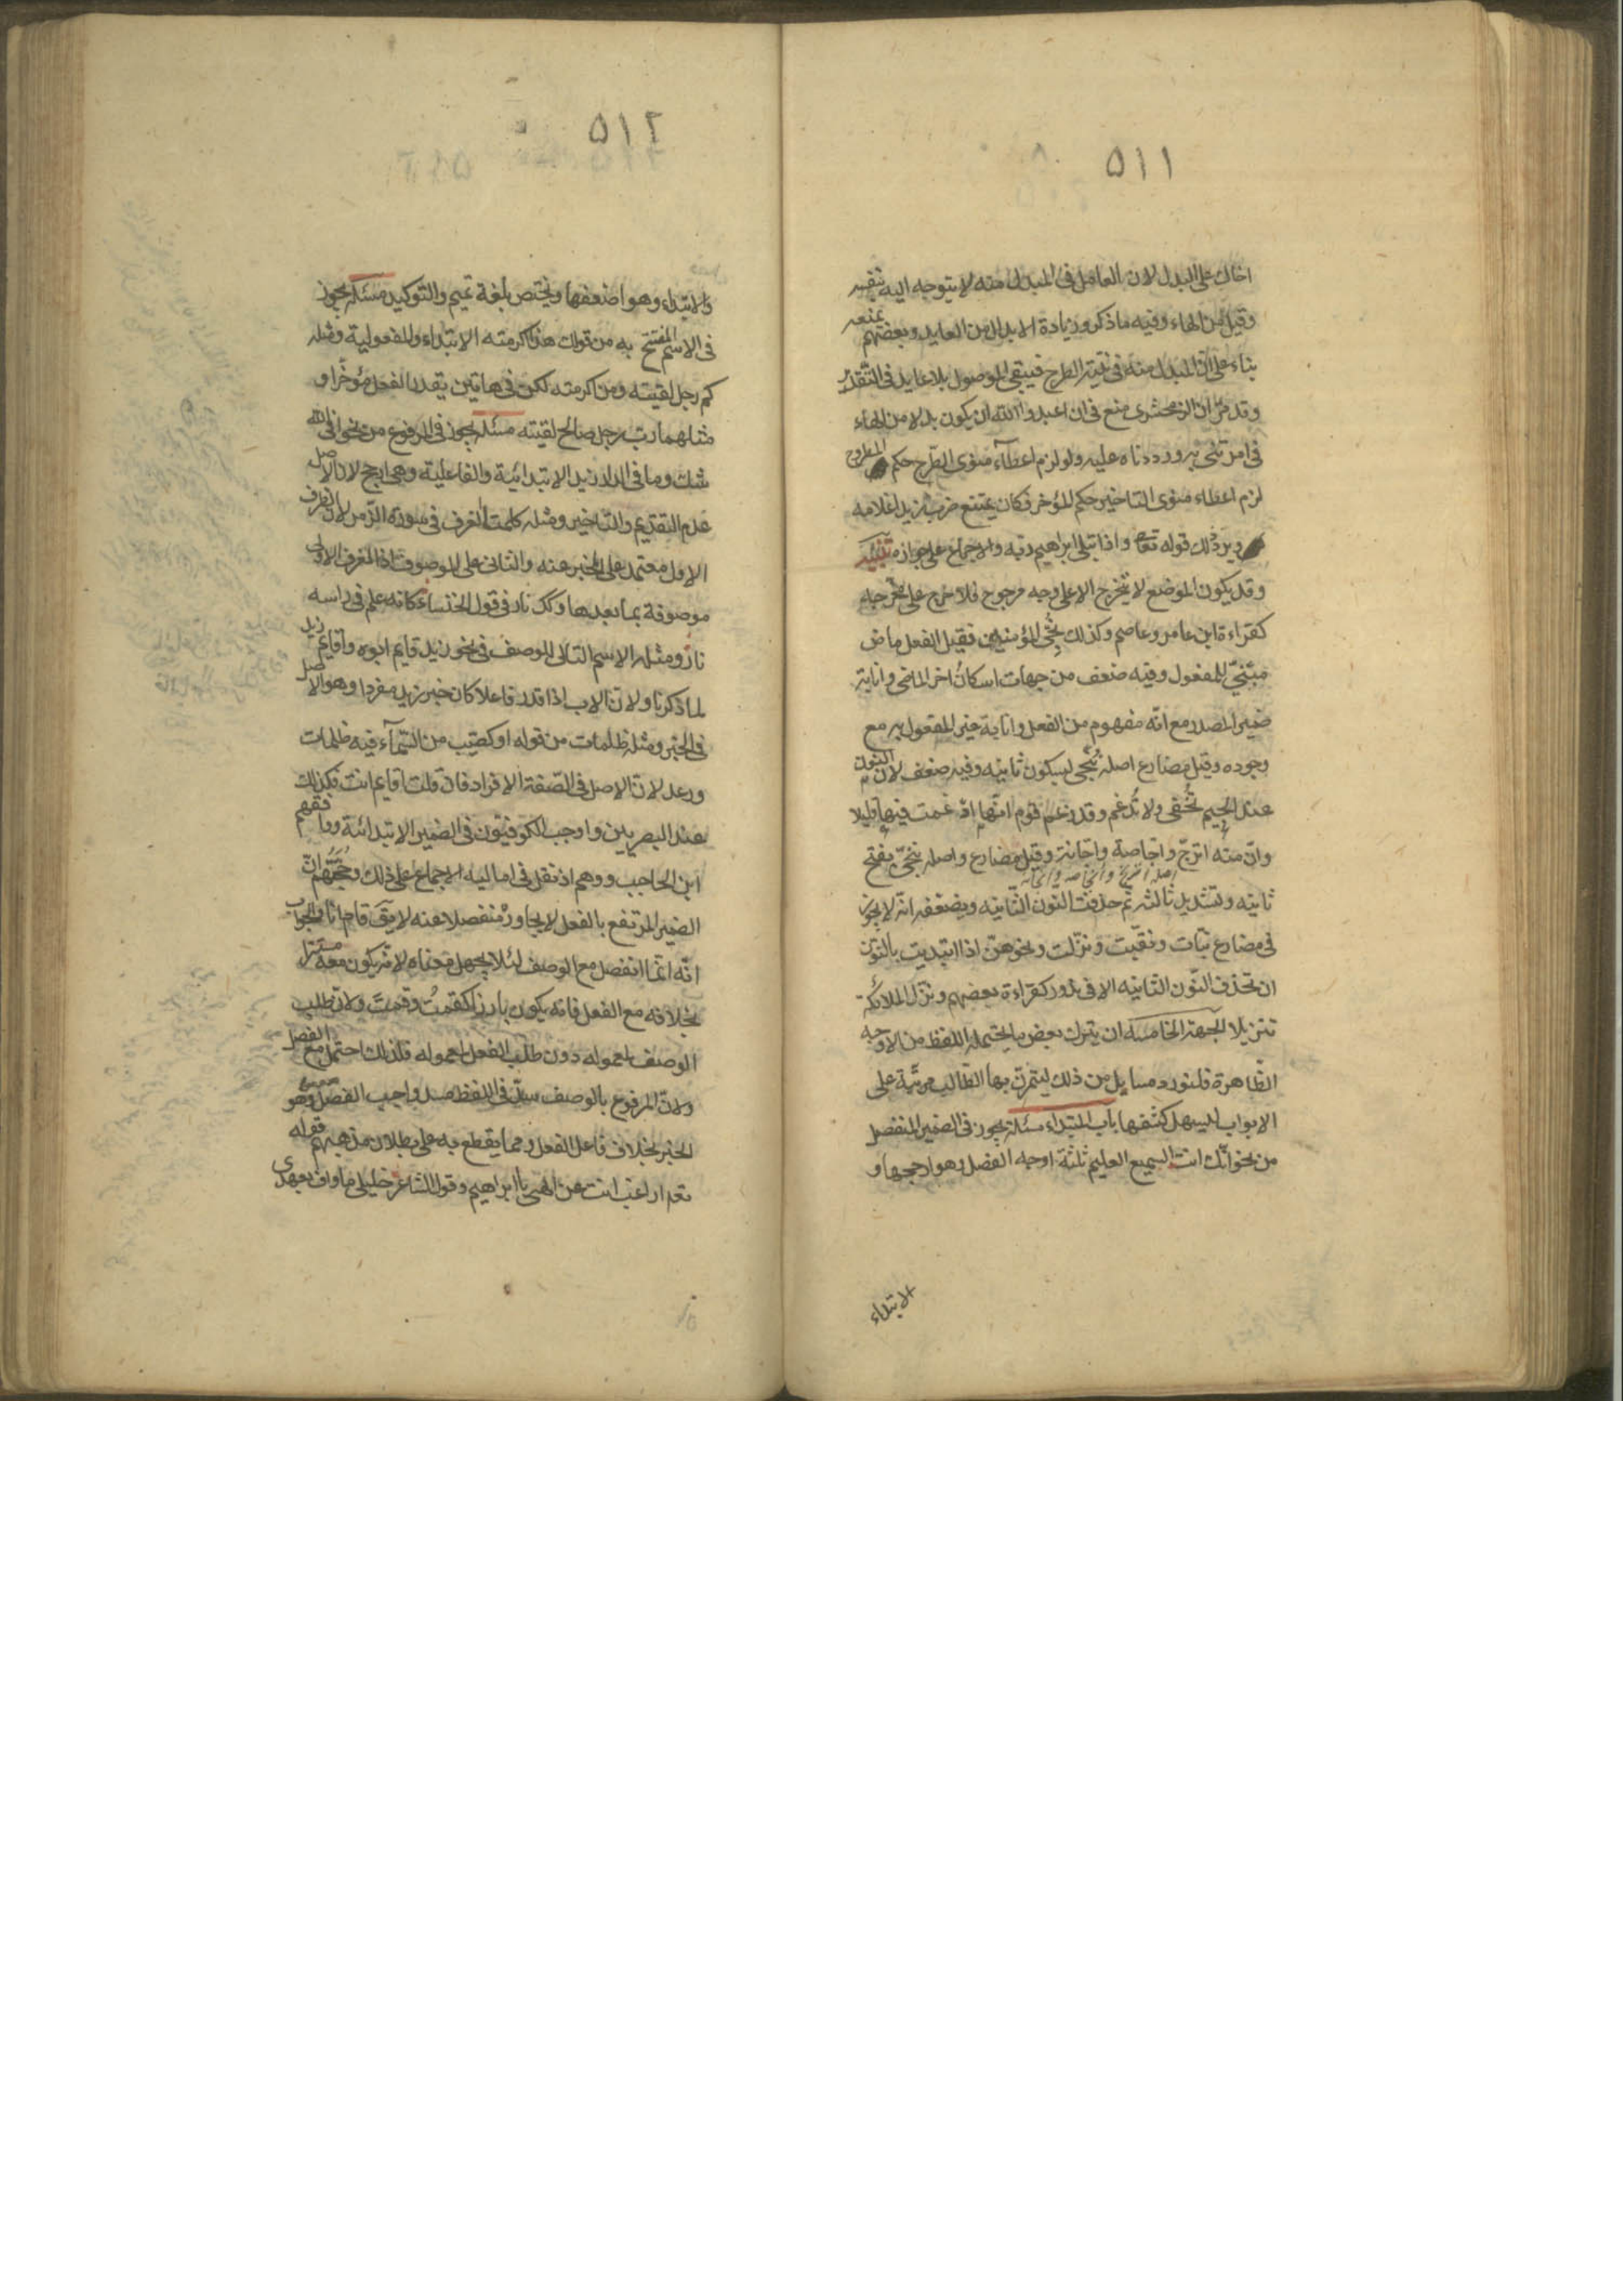 ٥١١
اخاك على البدل لان العامل فى المبدل منه لا يتوجه اليه بنفسه
وقيل من الهاء وفيه ما ذكر وزيادة الابدال من العايد وبعضهم يمنعه
بناء على ان المبدل منه فى نية الطرح فيبقى الموصول بلا عايد فى التقدير
وقد مر ان الزمخشرى منع فى ان اعبدوا الله ان يكون بدلا من الهاء
فى امرتنى به ورددناه عليه ولو لزم اعطاء منوى الطرح حكم المطروح
لزم اعطاء منوى التاخير حكم المؤخر فكان يمتنع ضرب زيدا غلامه
ويرد ذلك قوله تعالى واذ ابتلى ابراهيم ربه والاجماع على جوازه تنبيه
وقد يكون الموضع لا يتخرج الا على وجه مرجوح فلا حرج على مخرجه
كقراءة ابن عامر وعاصم وكذلك نجى المؤمنين فقيل الفعل ماض
مبنى للمفعول وفيه ضعف من جهات اسكان اخر الماضى وانابة
ضمير المصدر مع انه مفهوم من الفعل وانابة غير المفعول به مع
وجوده وقيل مضارع اصله ننجى بسكون ثانيه وفيه ضعف لان النون
عند الجيم تخفى ولا تدغم وقد زعم قوم انها ادغمت فيها قليلا
وان منه اترج واجاصة واجانة وقيل مضارع واصله ننجى بفتح
اصله اترنج وانجاصه وانجانه
ثانيه وتشديد ثالثه ثم حذفت النون الثانيه ويضعفه انه لا يجوز
فى مضارع نبات ونقبت ونزلت ونحوهن اذا ابتديت بالنون
ان تحذف النون الثانيه الا فى ندور كقراءة بعضهم ونزل الملائكة
تنزيلا الجهة الخامسه ان يترك بعض ما يحتمله اللفظ من الاوجه
الظاهرة فلنورد مسايل من ذلك ليتمرن بها الطالب مرتبة على
الابواب ليسهل كشفها باب المبتداء مسئلة يجوز فى الضمير المنفصل
من نحو انك انت السميع العليم ثلثة اوجه الفصل وهو ارجحها و
الابتداء
٥١٢
والابتداء وهو اضعفها ويختص بلغة تميم والتوكيد مسئله يجوز
فى الاسم المفتتح به من قولك هذا اكرمته الابتداء والمفعولية ومثله
كم رجل لقيته ومن اكرمته لكن فى هاتين يقدر الفعل مؤخرا و
مثلهما رب رجل صالح لقيته مسئله يجوز فى المرفوع من نحو افى الله
شك وما فى الدار زيد الابتدائية والفاعلية وهى ارجح لان الاصل
عدم التقديم والتاخير ومثله كلمتا الغرف فى سورة الزمر لان الظرف
الاول معتمد على المخبر عنه والثانى على الموصوف اذ الغرف الاولى
موصوفة بما بعدها وكك نار فى قول الخنساء كانه علم فى راسه
نار ومثله الاسم التالى للوصف فى نحو زيد قايم ابوه واقايم زيد
لما ذكرنا ولان الاب اذا قدر فاعلا كان خبر زيد مفردا وهو الاصل
فى الخبر ومثله ظلمات من قوله او كصيب من السماء فيه ظلمات
ورعد لان الاصل فى الصفة الافراد فان قلت اقايم انت فكذلك
عند البصريين واوجب الكوفيون فى الضمير الابتدائية ووافقهم
ابن الحاجب ووهم اذ نقل فى اماليه الاجماع على ذلك وحجتهم ان
الضمير المرتفع بالفعل لا يجاوره منفصلا عنه لا يق قام انا والجواب
انه انما انفصل مع الوصف لئلا يجهل معناه لانه يكون معه مستترا
بخلافه مع الفعل فانه يكون بارزا كقمتُ وقمتَ ولان طلب
الوصف لمعموله دون طلب الفعل لمعموله فلذلك احتمل مع الفصل
ولان المرفوع بالوصف سد فى اللفظ مسد واجب الفصل وهو
الخبر بخلاف فاعل الفعل ومما يقطع به على بطلان مذهبهم قوله
تعه اراغب انت عن الهتى يا ابراهيم وقول الشاعر خليلى ما واف بعهدى